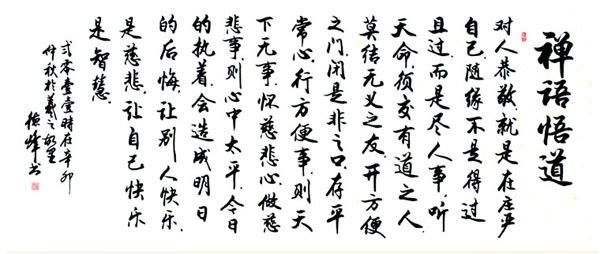 禅语悟道
对人恭敬就是在庄严
自己随缘不是得过
且过,而是尽人事,听
天命须交有道之人
莫结无义之友,开方便
之门,闭是非之口,存平
常心,行方便事,则天
下无事,怀慈悲心,做慈
悲事,则心中太平,今日
的执着,会造成明日
的后悔,让别人快乐,
是慈悲,让自己快乐
是智慧
贰零壹壹时在辛卯
仲秋於
书